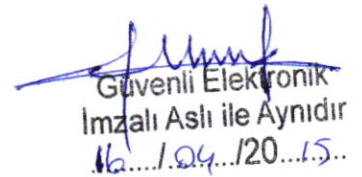 Güvenli Elektronik
İmzalı Aslı ile Aynıdır
16..../.04./20...15...